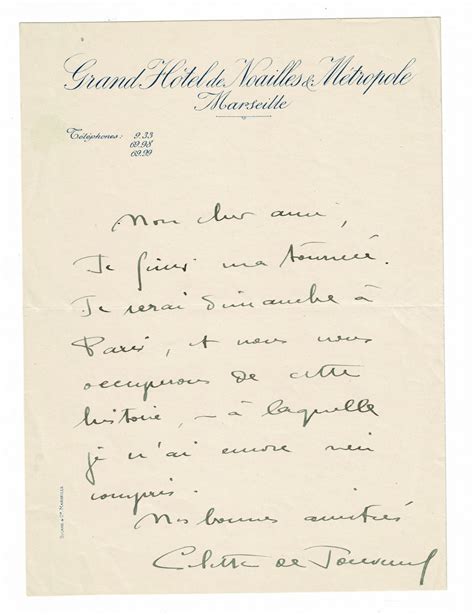 Grand Hôtel de Noailles & Métropole
Marseille
Téléphones: 9.33
69.98
69.99
Mon cher ami,
Je finis ma tournée.
Je serai dimanche à
Paris, et nous nous
occuperons de cette
histoire, – à laquelle
je n'ai encore rien
compris.
Nos bonnes amitiés
Colette de Jouvenel